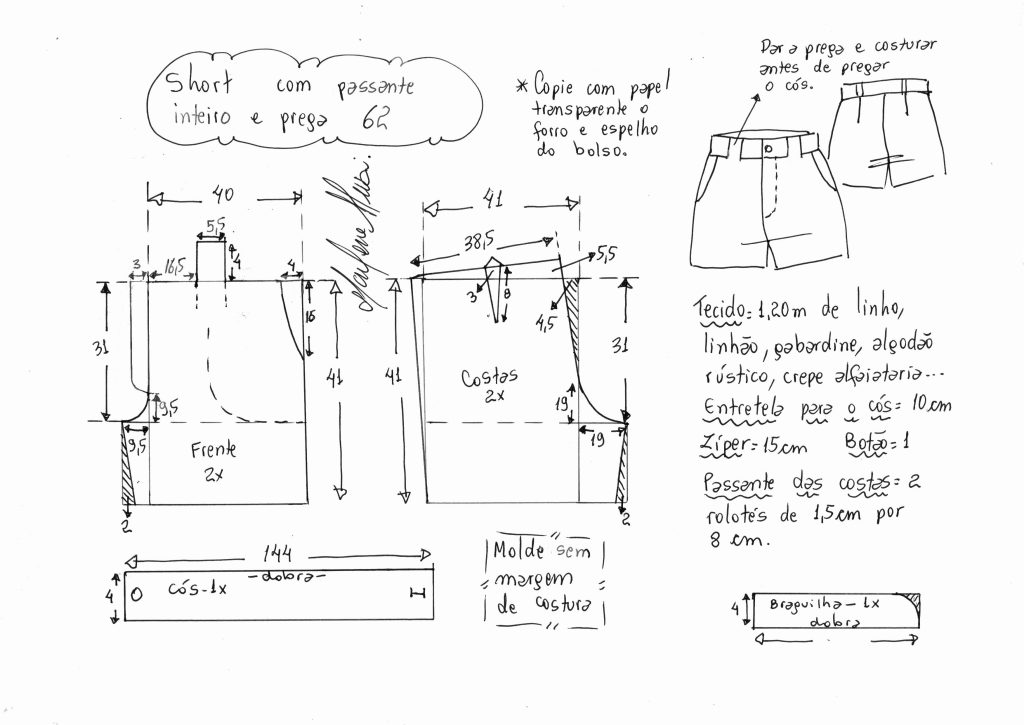 Short com passante
inteiro e prega 62
* Copie com papel
transparente o
forro e espelho
do bolso.
Para a prega e costurar
antes de pregar
o cós.
40
5,5
3
16,5
4
4
15
31
41
9,5
9,5
Frente
2x
2
41
38,5
5,5
3
8
4,5
41
31
Costas
2x
19
19
2
Tecido = 1,20m de linho,
linhão, gabardine, algodão
rústico, crepe alfaiataria...
Entretela para o cós = 10cm
Zíper = 15cm Botão = 1
Passante das costas = 2
rolotés de 1,5cm por
8 cm.
144
4
cós - 1x
- dobra -
Molde sem
margem
de costura
4
Braguilha - 1x
dobra